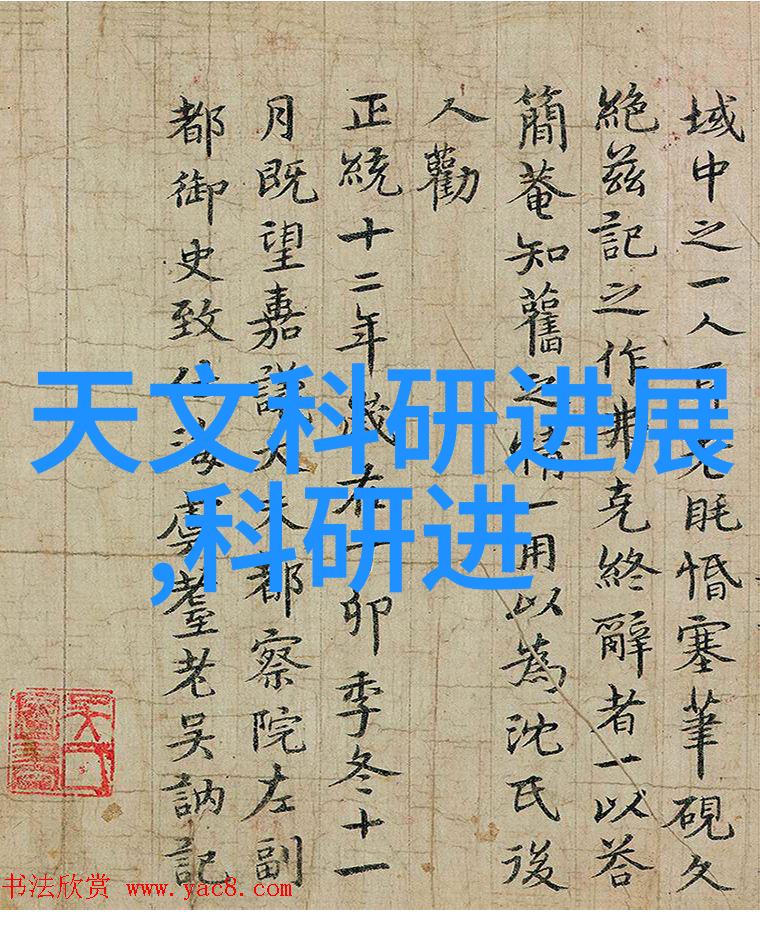 域中之一人眊惛塞筆硯久
絶茲記之作弗克終辭者一以荅
簡菴知舊之情一用以為沈氏後
人勸
正統十二年歲在丁卯季冬十一
月既望嘉議大夫都察院左副
都御史致仕海虞耋老吳訥記
天文科研进展
,科研进
书法欣赏 www.yac8.com